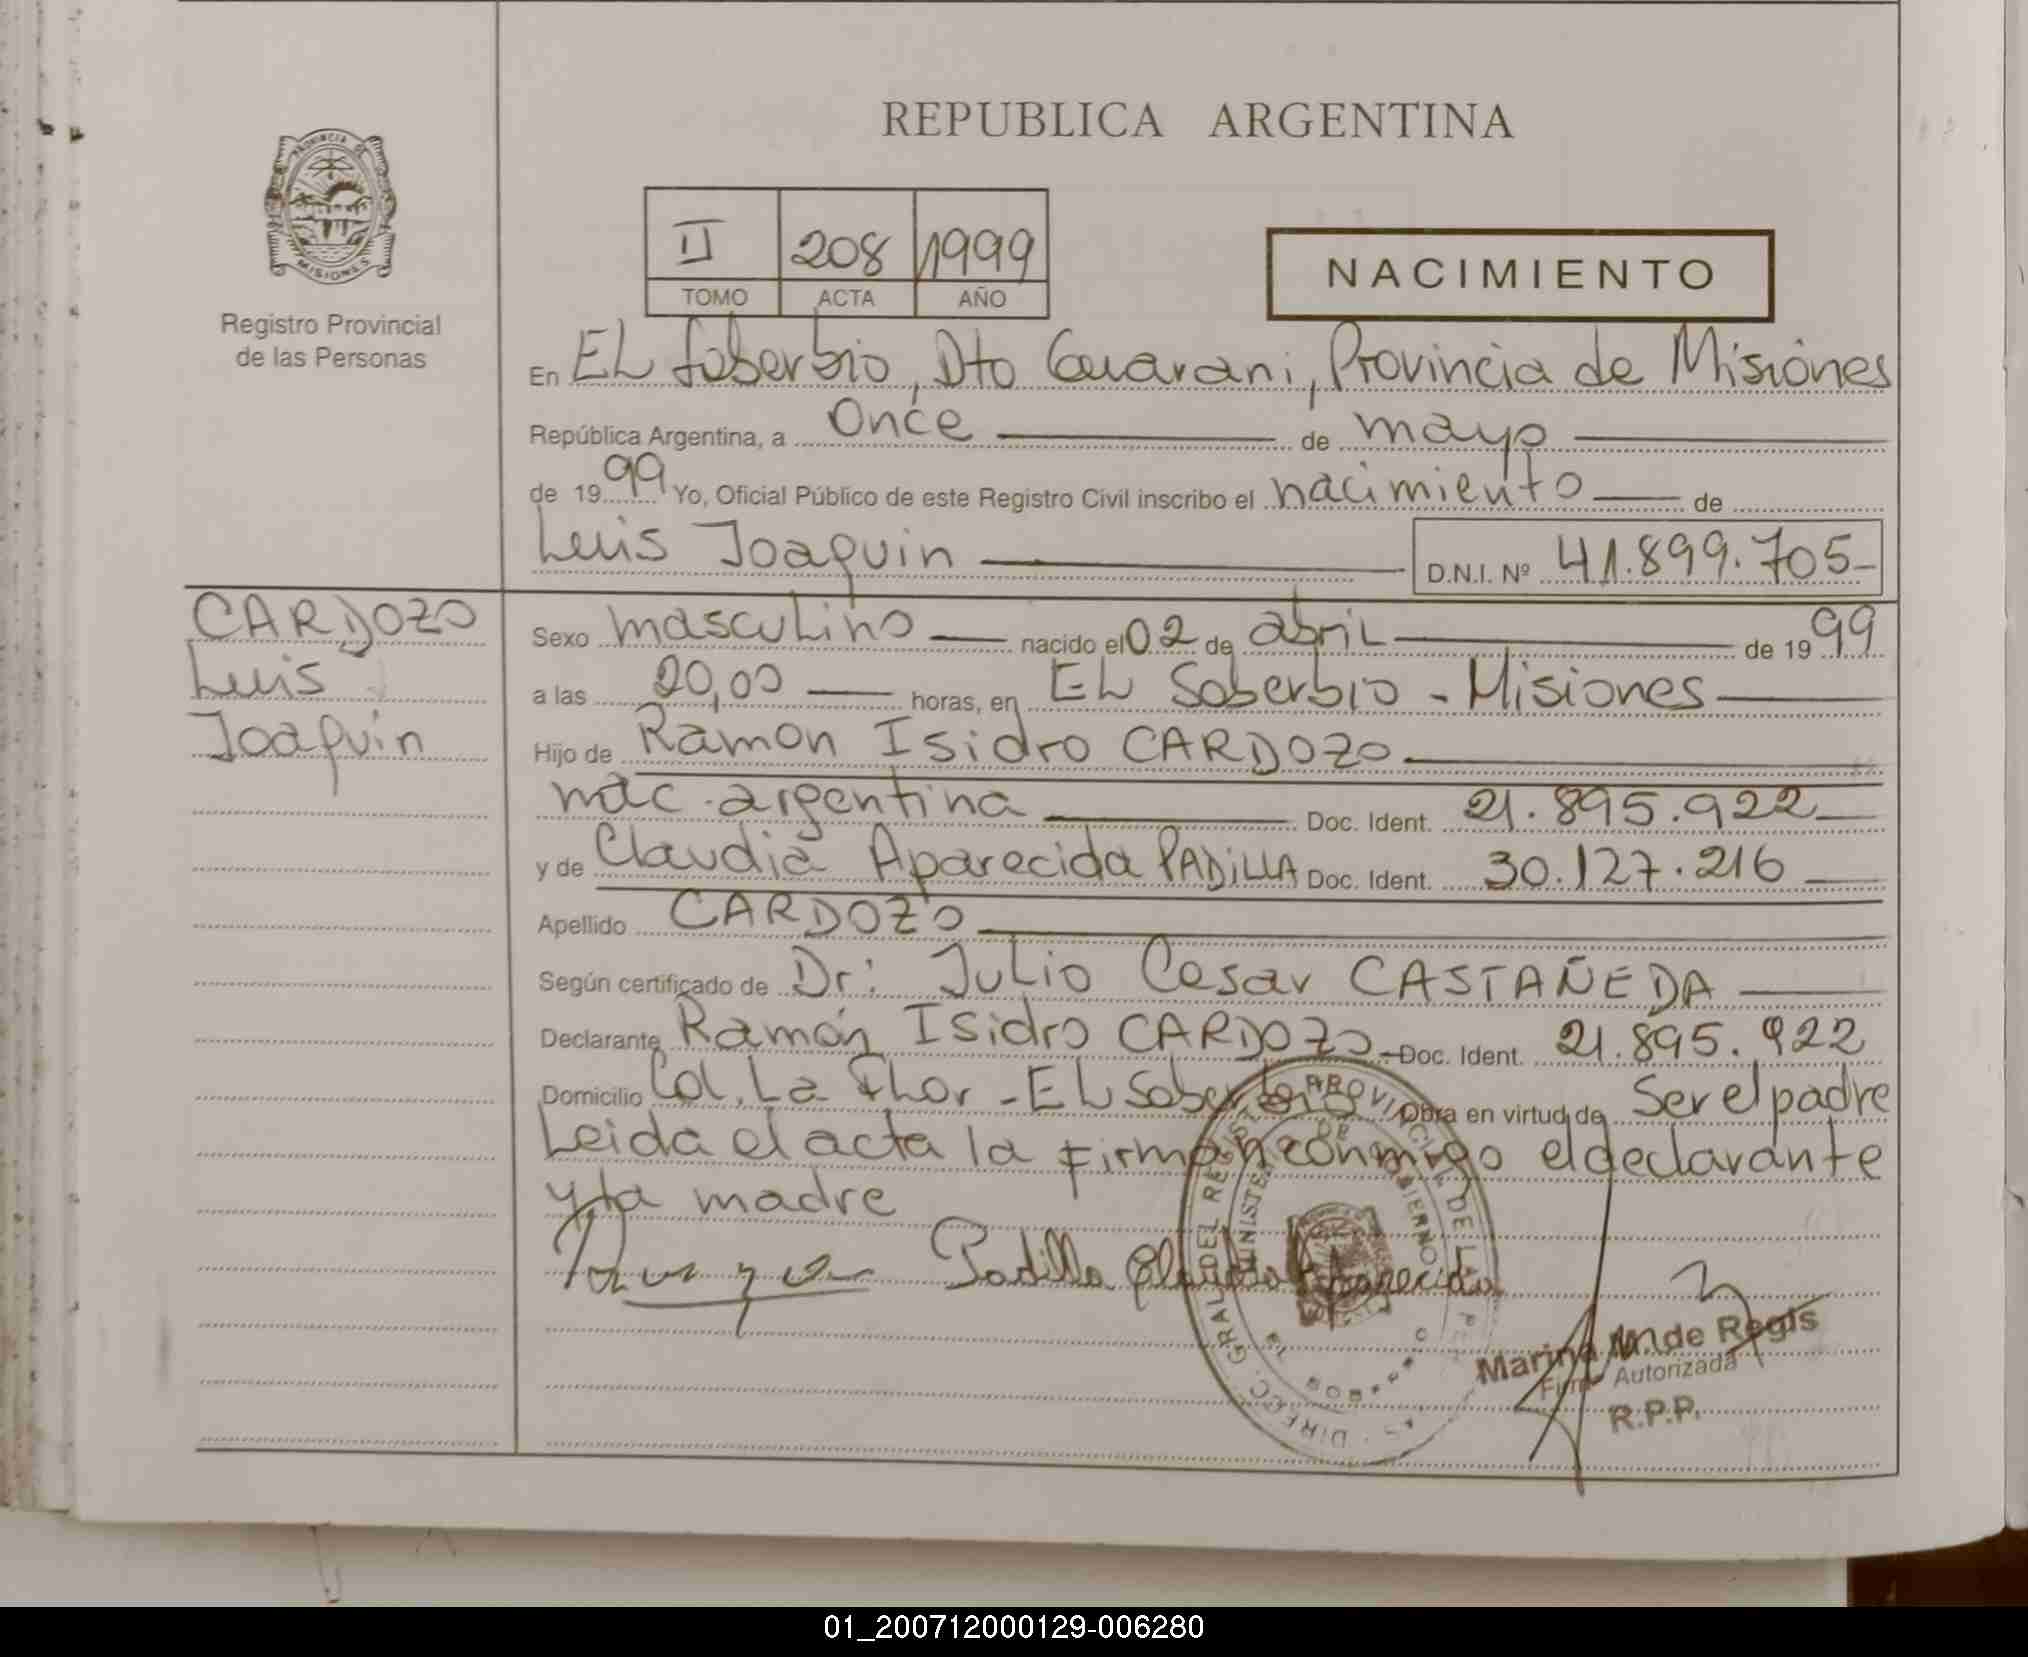 REPUBLICA ARGENTINA
PROVINCIA DE
MISIONES
Registro Provincial
de las Personas
II 208 1999
TOMO ACTA AÑO
NACIMIENTO
En EL Soberbio, Dto Guarani, Provincia de Misiones
República Argentina, a Once de mayo
de 1999 Yo, Oficial Público de este Registro Civil inscribo el nacimiento de
Luis Joaquin D.N.I. Nº 41.899.705
CARDOZO
Luis
Joaquin
Sexo masculino nacido el 02 de abril de 1999
a las 20,00 horas, en EL Soberbio - Misiones
Hijo de Ramon Isidro CARDOZO
nac. argentina Doc. Ident. 21.895.922
y de Claudia Aparecida PADiLLA Doc. Ident. 30.127.216
Apellido CARDOZO
Según certificado de Dr: Julio Cesar CASTAÑEDA
Declarante Ramón Isidro CARDOZO Doc. Ident. 21.895.922
Domicilio Col. La Flor - EL Soberbio Obra en virtud de Ser el padre
Leida el acta la firman conmigo el declarante
y la madre
Padilla Claudia Aparecida
Marina M. de Regis
Firma Autorizada
R.P.P.
01_200712000129-006280